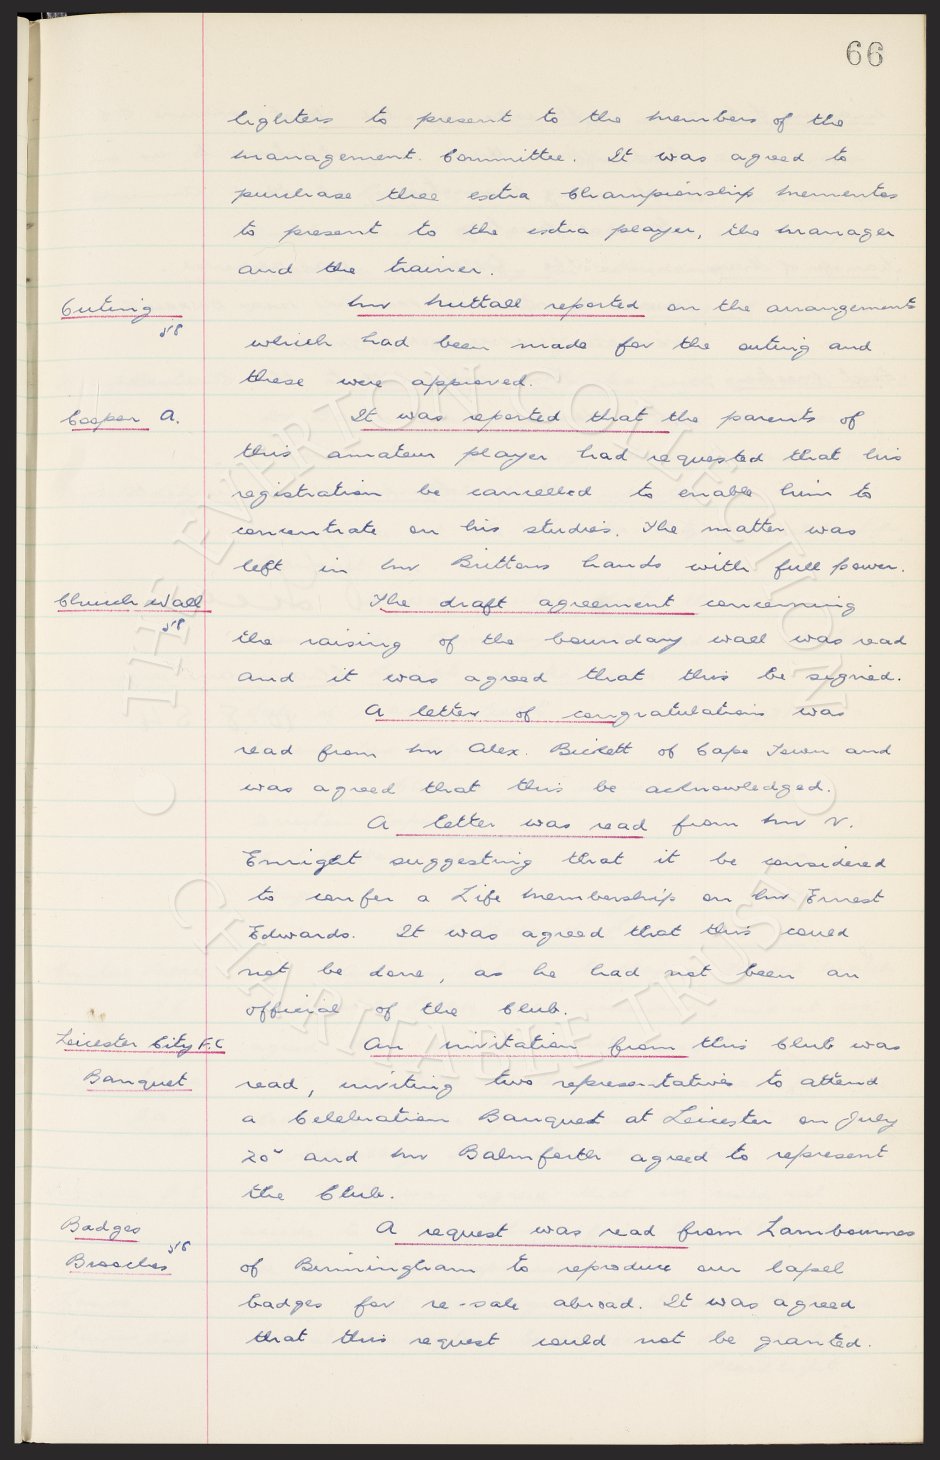 66
lighters to present to the members of the
management Committee. It was agreed to
purchase three extra Championship mementos
to present to the extra player, the manager
and the trainer.
Outing
Mr Nuttall reported on the arrangements
which had been made for the outing and
these were approved.
Cooper A.
It was reported that the parents of
this amateur player had requested that his
registration be cancelled to enable him to
concentrate on his studies. The matter was
left in Mr Brittons hands with full power.
Church Wall
The draft agreement concerning
the raising of the boundary wall was read
and it was agreed that this be signed.
A letter of congratulations was
read from Mr Alex. Birkett of Cape Town and
was agreed that this be acknowledged.
A letter was read from Mr V.
Enright suggesting that it be considered
to confer a Life Membership on Mr Ernest
Edwards. It was agreed that this could
not be done, as he had not been an
official of the Club.
Leicester City F.C
Banquet
An invitation from this Club was
read, inviting two representatives to attend
a Celebration Banquet at Leicester on July
20 and Mr Balmforth agreed to represent
the Club.
Badges
Brooches
A request was read from Lambournes
of Birmingham to reproduce our lapel
badges for re-sale abroad. It was agreed
that this request could not be granted.
THE EVERTON COLLECTION
CHARITABLE TRUST